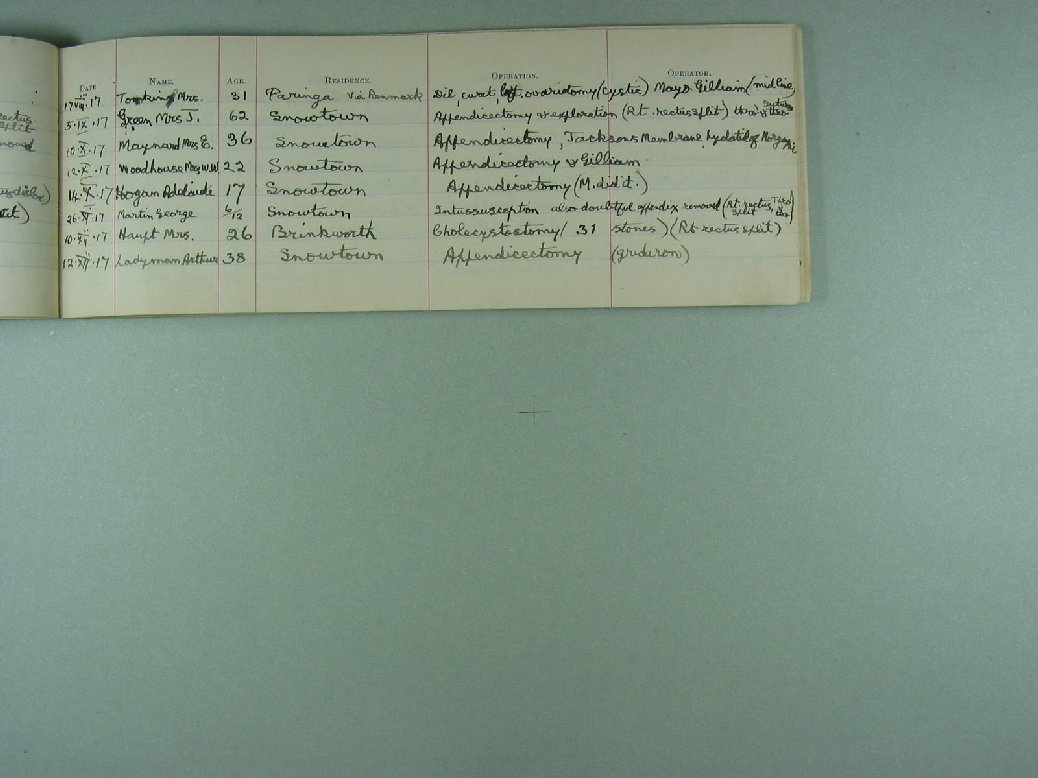 rectus
split
DATE. NAME. AGE. RESIDENCE. OPERATION. OPERATOR.
17.VIII.17 Mrs. 31 Paringa via Renmark Dil, curet, left ovariotomy (cystic) Mayo Gilliam (midline)
5.IX.17 Green Mrs J. 62 Snowtown Appendicectomy & exploration (Rt. rectus split)
10.X.17 Maynard Mrs E. 36 Snowtown Appendicectomy, Jacksons Membrane, hydatid of
12.X.17 Woodhouse 22 Snowtown Appendicectomy & Gilliam
14.X.17 Hogan Adelaide 17 Snowtown Appendicectomy (M. did it.)
26.XI.17 Martin George 6/12 Snowtown Intussusception also doubtful appendix removed (Rt. rectus split
10.XII.17 Haupt Mrs. 26 Brinkworth Cholecystostomy (31 stones) (Rt rectus split)
12.XII.17 Ladyman Arthur 38 Snowtown Appendicectomy (gridiron)